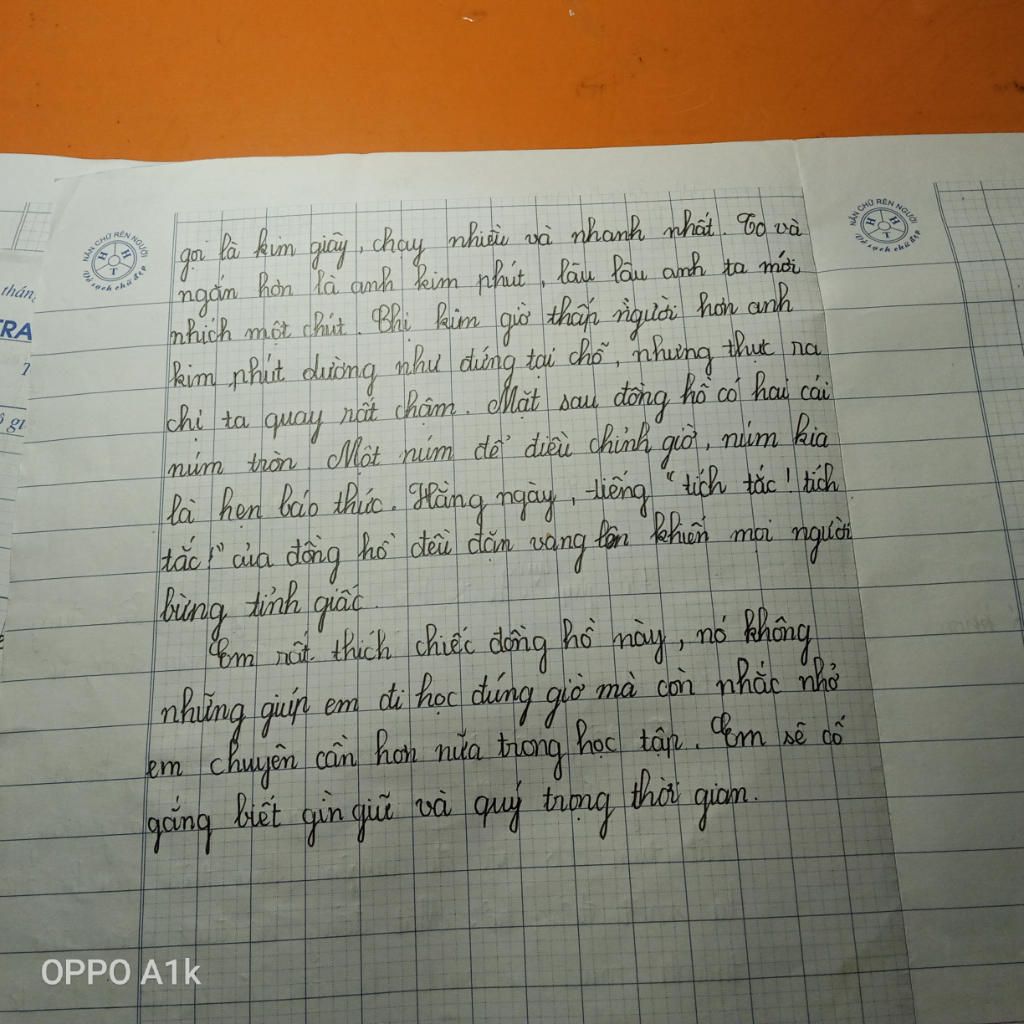 NẮN CHỮ RÈN NGƯỜI
H H T
Vở sạch chữ đẹp
NẮN CHỮ RÈN NGƯỜI
H H T
Vở sạch chữ đẹp
thán
TRA
gọi là kim giây, chạy nhiều và nhanh nhất. To và
ngắn hơn là anh kim phút, lâu lâu anh ta mới
nhích một chút. Chị kim giờ thấp người hơn anh
kim phút dường như đứng tại chỗ, nhưng thực ra
chị ta quay rất chậm. Mặt sau đồng hồ có hai cái
núm tròn. Một núm để điều chỉnh giờ, núm kia
là hẹn báo thức. Hàng ngày, tiếng "tích tắc! tích
tắc!" của đồng hồ đều đặn vang lên khiến mọi người
bừng tỉnh giấc.
Em rất thích chiếc đồng hồ này, nó không
những giúp em đi học đúng giờ mà còn nhắc nhở
em chuyên cần hơn nữa trong học tập. Em sẽ cố
gắng biết gìn giữ và quý trọng thời gian.
OPPO A1k